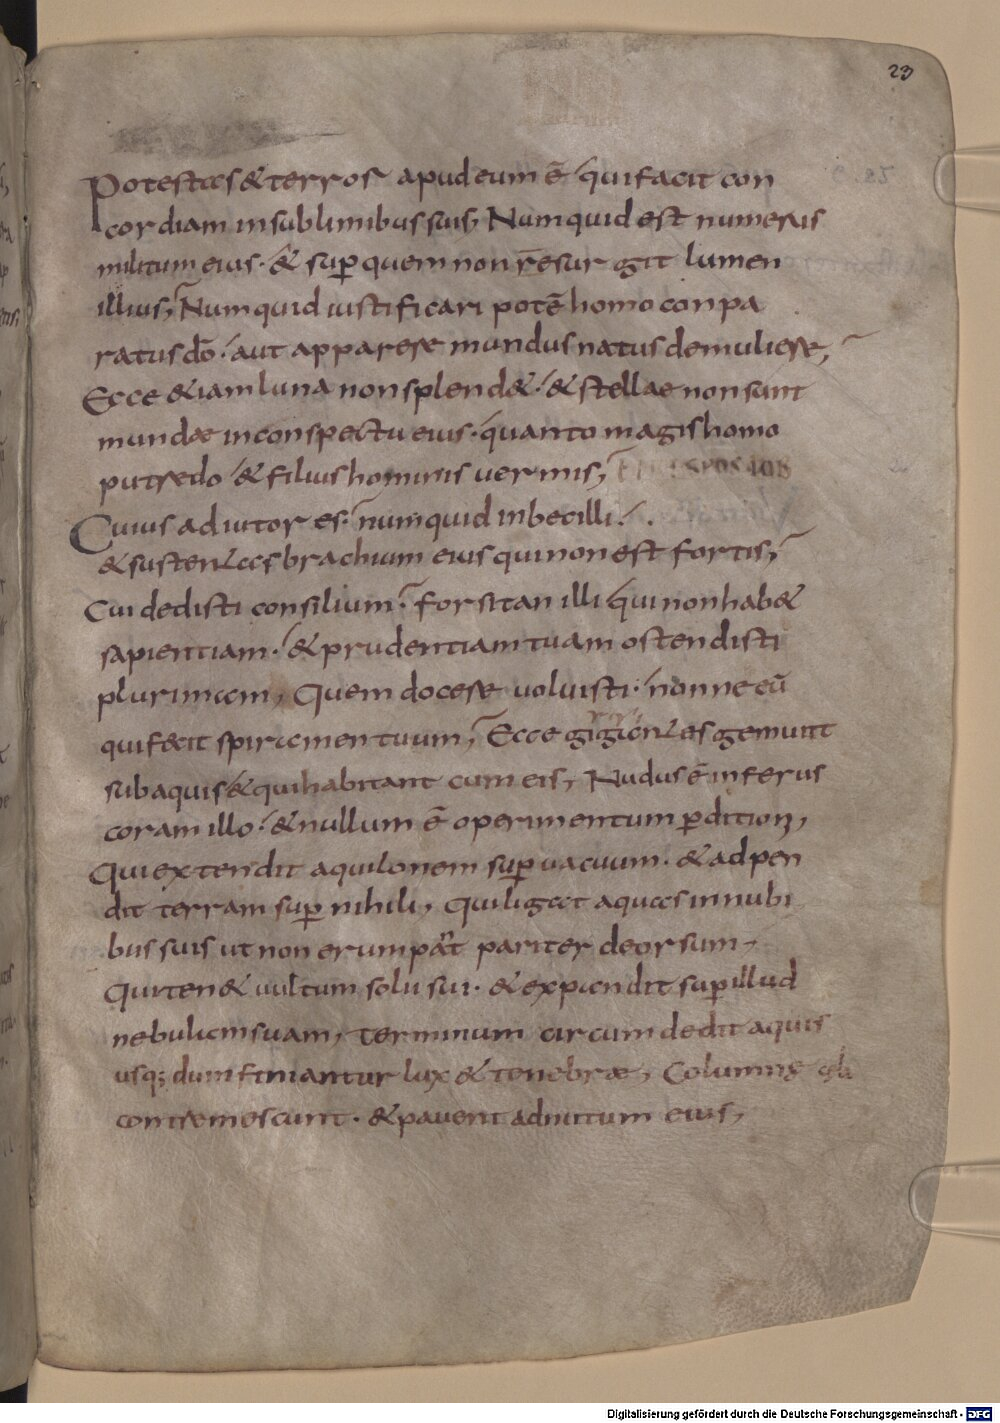 23
Potestas & terror apud eum ē qui facit con
cordiam in sublimibus suis; Numquid est numerus
militum eius · & sup quem non resurgit lumen
illius; Numquid iustificari potē homo conpa
ratus dō · aut apparere mundus natus de muliere;
Ecce &iam luna non splend& · & stellae non sunt
mundae in conspectu eius · quanto magis homo
putredo & filius hominis vermis; 
Cuius adiutor es · numquid inbecilli · .
& sustentas brachium eius qui non est fortis;
Cui dedisti consilium · forsitan illi qui non hab&
sapientiam · & prudentiam tuam ostendisti
plurimam; Quem docere voluisti · nonne eū
qui fecit spiramentum; Ecce gigantes gemunt
sub aquis & qui habitant cum eis; Nudus ē inferus
coram illo · & nullum ē operimentum pditioni;
Qui extendit aquilonem sup vacuum · & adpen
dit terram sup nihili; Qui ligat aquas in nubi
bus suis ut non erumpant pariter deorsum
Qui ten& uultum solii sui · & expandit sup illud
nebulam suam; Terminum circumdedit aquis
usq; dum finiantur lux & tenebrae; Columnę cęli
contremescunt · & pavent ad nutum eius;
Digitalisierung gefördert durch die Deutsche Forschungsgemeinschaft - DFG